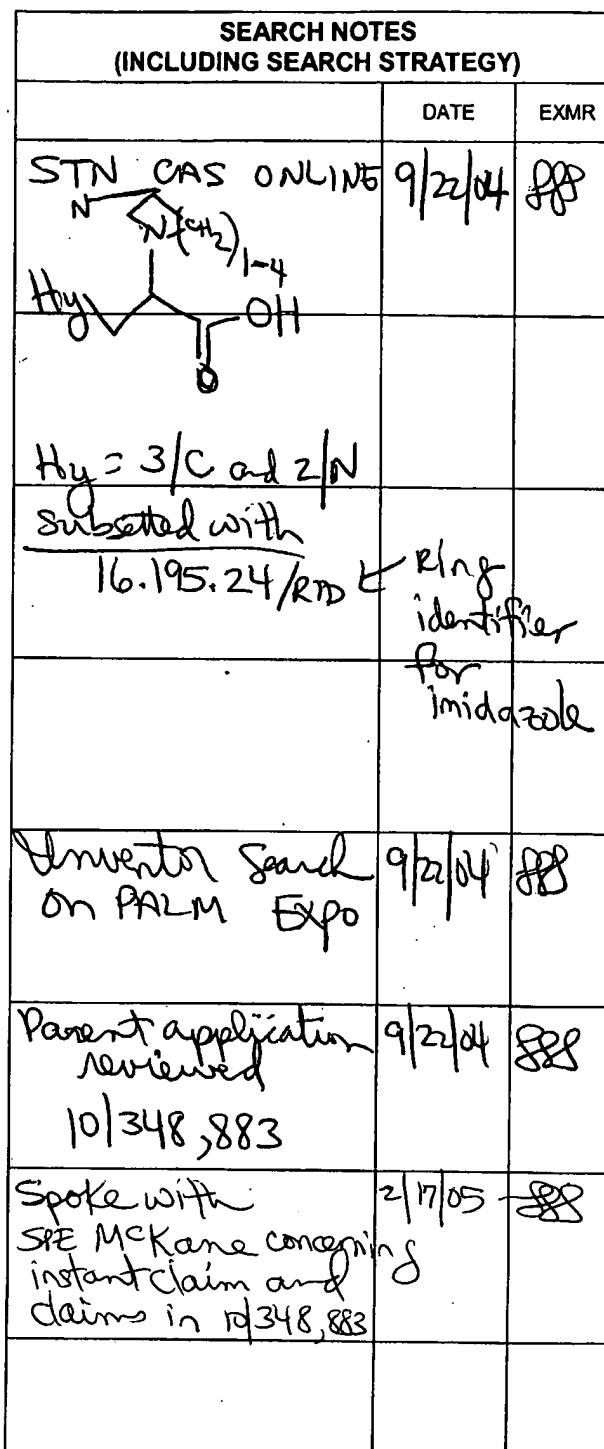 SEARCH NOTES
(INCLUDING SEARCH STRATEGY)
DATE EXMR
STN CAS ONLINE 9/22/04
N
N (CH2)1-4
Hy OH
O
Hy = 3/C and 2/N
subsetted with
16.195.24/RID ← Ring
identifier
for
imidazole
Inventor Search 9/22/04
on PALM Expo
Parent application 9/22/04
reviewed
10/348,883
Spoke with 2/17/05
SPE McKane concerning
instant claim and
claims in 10/348,883